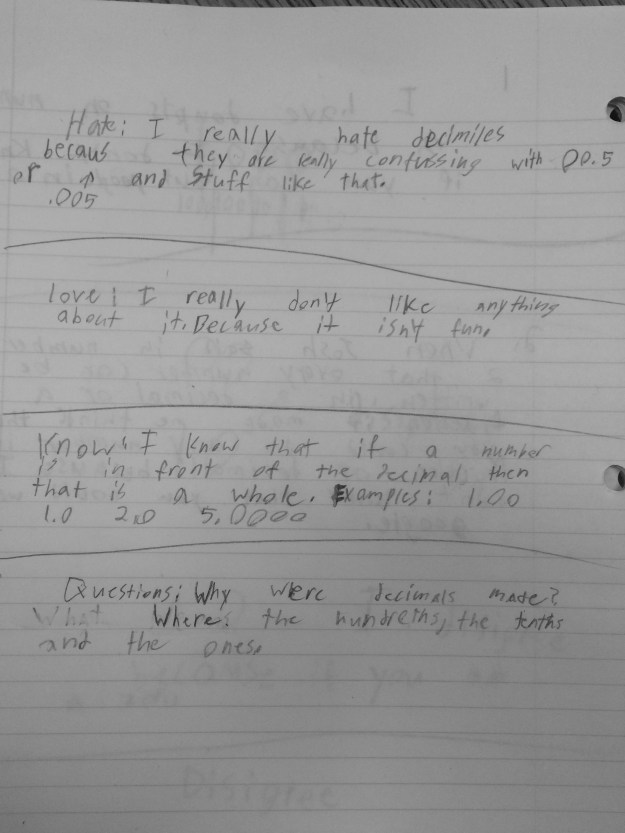 Hate: I really hate decimiles
becaus they are really confussing with 00.5
or ↑ and Stuff like that.
.005
love: I really don't like anything
about it. Because it isn't fun.
Know: I know that if a number
is in front of the decimal then
that is a whole. Examples: 1.00
1.0 2.0 5.0000
Questions: Why were decimals made?
What Where: the hundreths, the tenths
and the ones.